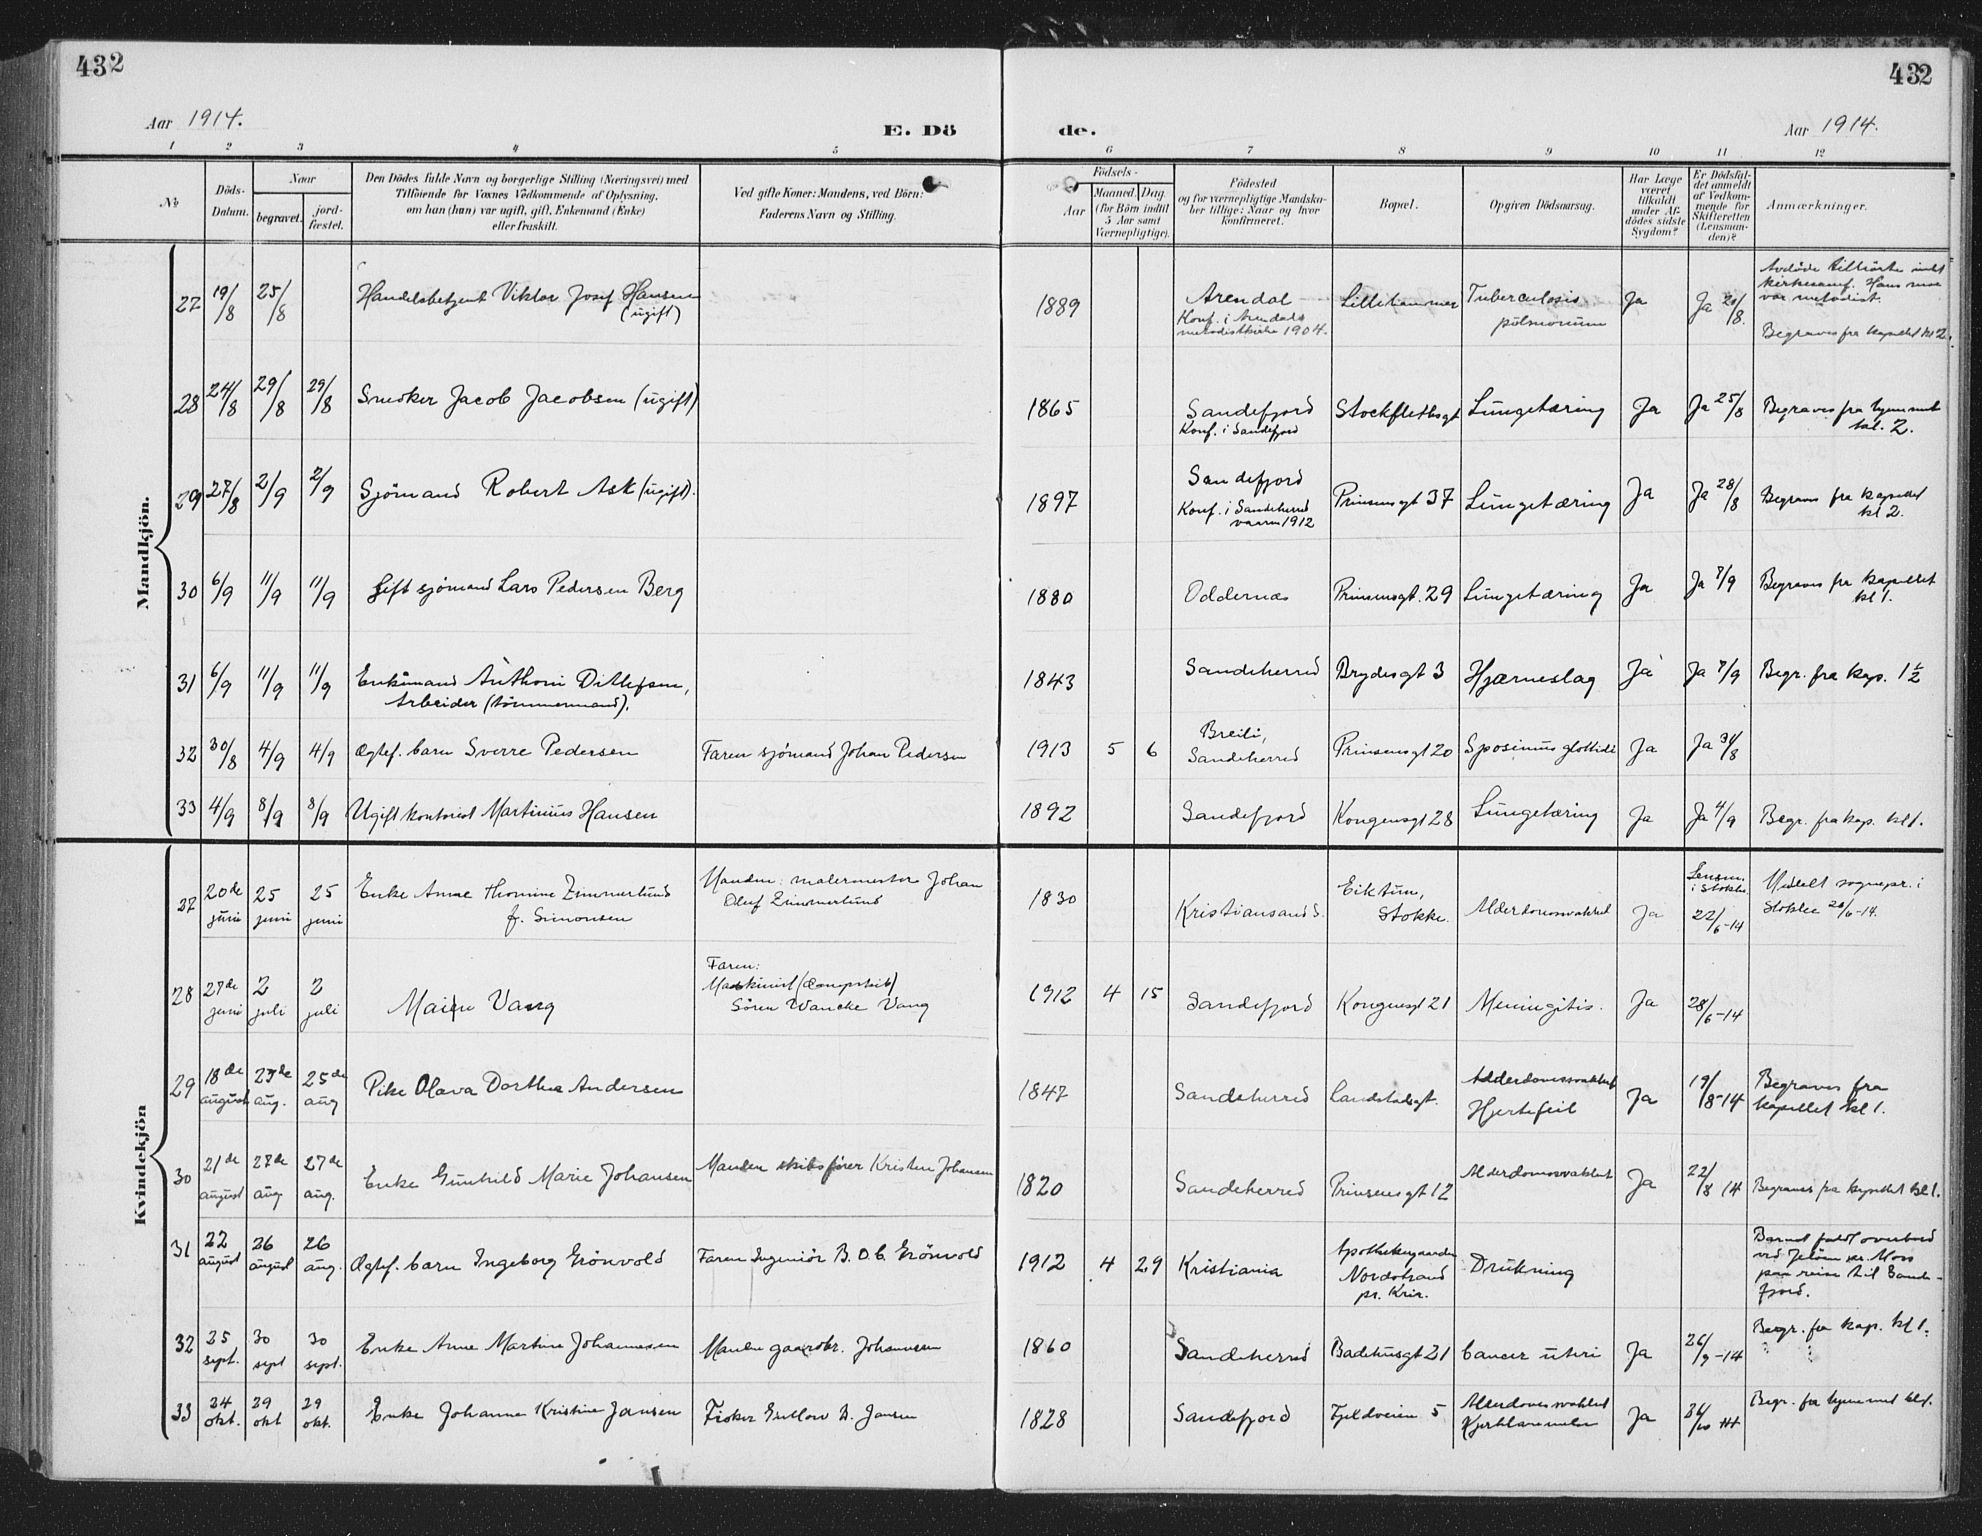 432
432
Aar 1914.
E. Dö
de.
Aar 1914.
1 2 3 4 5 6 7 8 9 10 11 12
№
Döds-
Datum.
Naar
begravet.
jord-
fæstet.
Den Dödes fulde Navn og borgerlige Stilling (Næringsvei) med
Tilföiende for Voxnes Vedkommende af Oplysning,
om han (hun) var ugift, gift, Enkemand (Enke)
eller fraskilt.
Ved gifte Koner: Mandens, ved Börn:
Faderens Navn og Stilling.
Födsels-
Aar
Maaned. Dag.
(for Börn indtil
5 Aar samt
Værnepligtige).
Födested
og for værnepligtige Mandsko-
ber tillige: Naar og hvor
konfirmeret.
Bopæl.
Opgiven Dödsaarsag.
Har Læge
været
tilkaldt
under Af-
dödes sidste
Sygdom?
Er Dödsfal-
det anmeldt
af Vedkom-
mende for
Skifteretten
(Lensman-
den)?
Anmærkninger.
Mandkjön.
27 19/8 25/8 Handelsbetjent Viktor Josef Hansen
(ugift)
1889 Arendal
Konf. i Arendals
metodistkirke 1904.
Lillehammer Tuberculosis
pulmonum
Ja Ja 20/8.
Avdøde tilhørte
var metodist.
Begraves fra kapellet kl 2.
28 24/8 29/8 29/8 Snedker Jacob Jacobsen (ugift)
1865 Sandefjord
Konf. i Sandefjord
Stockflethsgt Lungetæring Ja Ja 25/8 Begraves fra hjemmet
kl. 2.
29 27/8 2/9 2/9 Sjömand Robert Ask (ugift).
1897 Sandefjord
Konf. i Sandeherred
vaaren 1912
Prinsensgt 37 Lungetæring Ja Ja 28/8 Begraves fra kapellet
kl 2.
30 6/9 11/9 11/9 Gift sjömand Lars Pedersen Berg
1880 Oddernæs Prinsensgt. 29 Lungetæring Ja Ja 7/9 Begraves fra kapellet
kl 1.
31 6/9 11/9 11/9 Enkemand Anthoni Ditlefsen,
Arbeider (tömmermand).
1843 Sandeherred Brydesgt 3 Hjærneslag Ja Ja 7/9 Begr. fra kap. 1 ½
32 30/8 4/9 4/9 Ægtef. barn Sverre Pedersen Faren sjömand Johan Pedersen
1913 5 6 Breili,
Sandeherred
Prinsensgt 20 Ja Ja 31/8
33 4/9 8/9 8/9 Ugift kontorist Martinius Hansen
1892 Sandefjord Kongensgt 28 Lungetæring Ja Ja 4/9 Begr. fra kap. kl 1.
Kvindekjön
27 20de
juni
25
juni
25
juni
Enke Anne Thomine Zimmerlund
f. Simonsen
Manden: malermester Johan
Oluf Zimmerlund
1830 Kristiansand S. Eiktun,
Stokke.
Alderdomssvakhet Ja Lensm.
i Stokke
22/6-14
Meddelt sognepr. i
Stokke 20/6-14.
28 27de
juni
2
juli
2
juli
Vang
Faren:
Maskinist (dampskib)
Sören Wancke Vang
1912 4 15 Sandefjord Kongensgt 21 Meningitis. Ja 28/6-14
29 18de
august
25de
aug.
25de
aug
Pike Olava Dorthea Andersen
1847 Sandeherred Landstadsgt. Alderdomssvakhet
Hjertefeil
Ja 19/8-14 Begraves fra
kapellet kl 1.
30 21de
august
27de
aug.
27de
aug.
Enke Gunhild Marie Johansen Manden skibsfører Kristen Johansen
1820 Sandeherred Prinsensgt 12 Alderdomssvakhet Ja 22/8 14 Begraves fra kapellet kl 1.
31 22
august
26
august
26
aug.
Ægtef. barn Ingeborg Grönvold Faren Ingeniör B. O. C. Grönvold
1912 4 29 Kristiania Apothekergaarden
Nordstrand
pr. Kria.
Drukning
Barnet faldt overbord
ved Jelöen pr. Moss
paa reise til Sande-
fjord.
32 25
sept.
30
sept
30
sept.
Enke Anne Martine Johannesen Manden gaardbr. Johannesen
1860 Sandeherred Badehusgt 21 Cancer uteri Ja 26/9-14 Begr. fra kap. kl 1.
33 24
okt.
29
okt
29
okt.
Enke Johanne Kristine Jansen Fisker Jansen
1828 Sandefjord Fjeldveien 5 Alderdomssvakhet
Hjertelammelse
Ja 26/10 14 Begr. fra hjemmet kl 1.